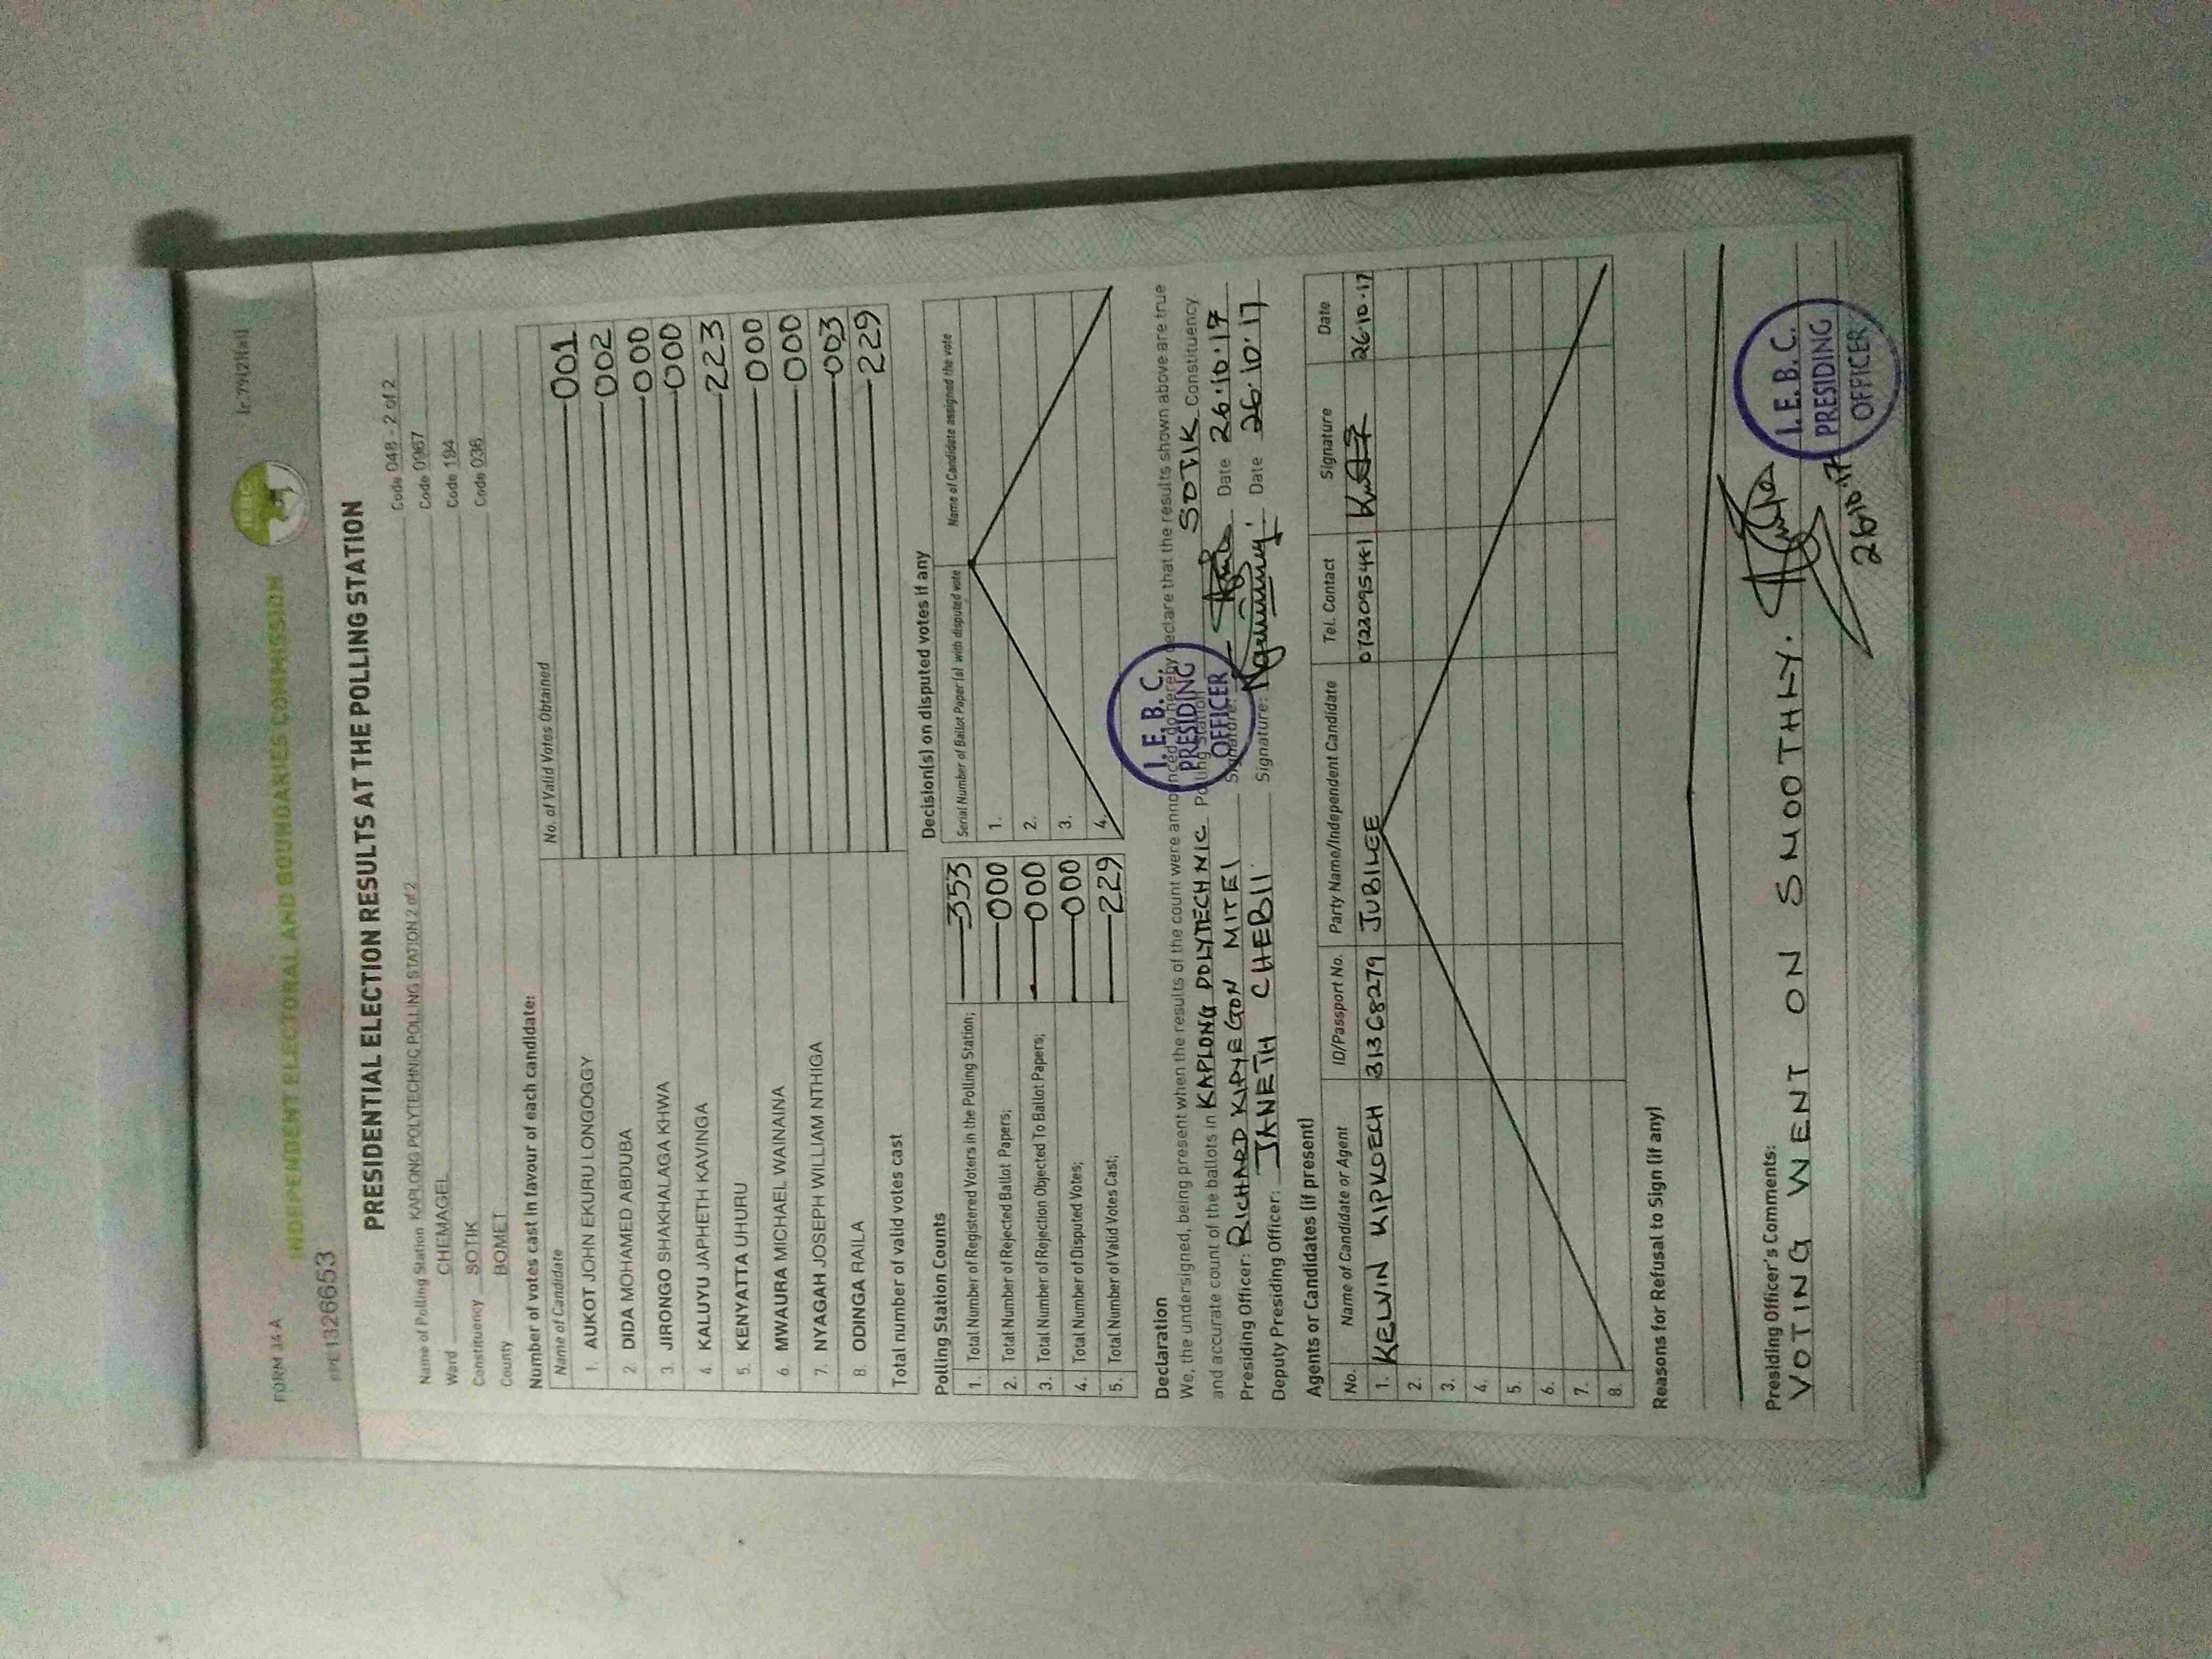 FORM 34 A
INDEPENDENT ELECTORAL AND BOUNDARIES COMMISSION
IEBC
PPE 1326653
PRESIDENTIAL ELECTION RESULTS AT THE POLLING STATION
Name of Polling Station KAPLONG POLYTECHNIC POLLING STATION 2 of 2 Code 048 - 2 of 2
Ward CHEMAGEL Code 0967
Constituency SOTIK Code 194
County BOMET Code 036
Number of votes cast in favour of each candidate:
Name of Candidate No. of Valid Votes Obtained
1. AUKOT JOHN EKURU LONGOGGY 001
2. DIDA MOHAMED ABDUBA 002
3. JIRONGO SHAKHALAGA KHWA 000
4. KALUYU JAPHETH KAVINGA 000
5. KENYATTA UHURU 223
6. MWAURA MICHAEL WAINAINA 000
7. NYAGAH JOSEPH WILLIAM NTHIGA 000
8. ODINGA RAILA 003
Total number of valid votes cast 229
Polling Station Counts
1. Total Number of Registered Voters in the Polling Station; 353
2. Total Number of Rejected Ballot Papers; 000
3. Total Number of Rejection Objected To Ballot Papers; 000
4. Total Number of Disputed Votes; 000
5. Total Number of Valid Votes Cast; 229
Decision(s) on disputed votes if any
Serial Number of Ballot Paper (s) with disputed vote Name of Candidate assigned the vote
1.
2.
3.
4.
Declaration
We, the undersigned, being present when the results of the count were announced, do hereby declare that the results shown above are true
and accurate count of the ballots in KAPLONG POLYTECHNIC Polling Station SOTIK Constituency
Presiding Officer: RICHARD KIPYEGON MITEI Signature: Date 26.10.17
Deputy Presiding Officer: JANETH CHEBII Signature: Date 26.10.17
I.E.B.C.
PRESIDING
OFFICER
Agents or Candidates (if present)
No. Name of Candidate or Agent ID/Passport No. Party Name/Independent Candidate Tel. Contact Signature Date
1. KELVIN KIPKOECH 31368279 JUBILEE 0722095441 26.10.17
2.
3.
4.
5.
6.
7.
8.
Reasons for Refusal to Sign (if any)
Presiding Officer's Comments:
VOTING WENT ON SMOOTHLY.
26.10.17
I.E.B.C.
PRESIDING
OFFICER